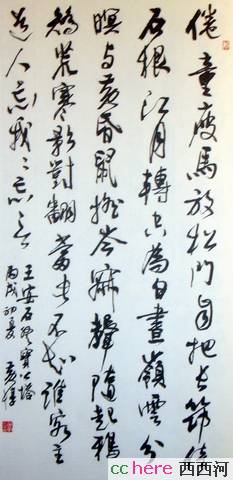 倦童疲馬放松門自把長筇倚
石根江月轉空為白晝嶺雲分
暝與黄昏鼠摇岑寂聲隨起鴉
矯荒寒影對翻當此不知誰客主
道人忘我々忘言
王安石登寶公塔
丙戌初夏
cchere 西西河